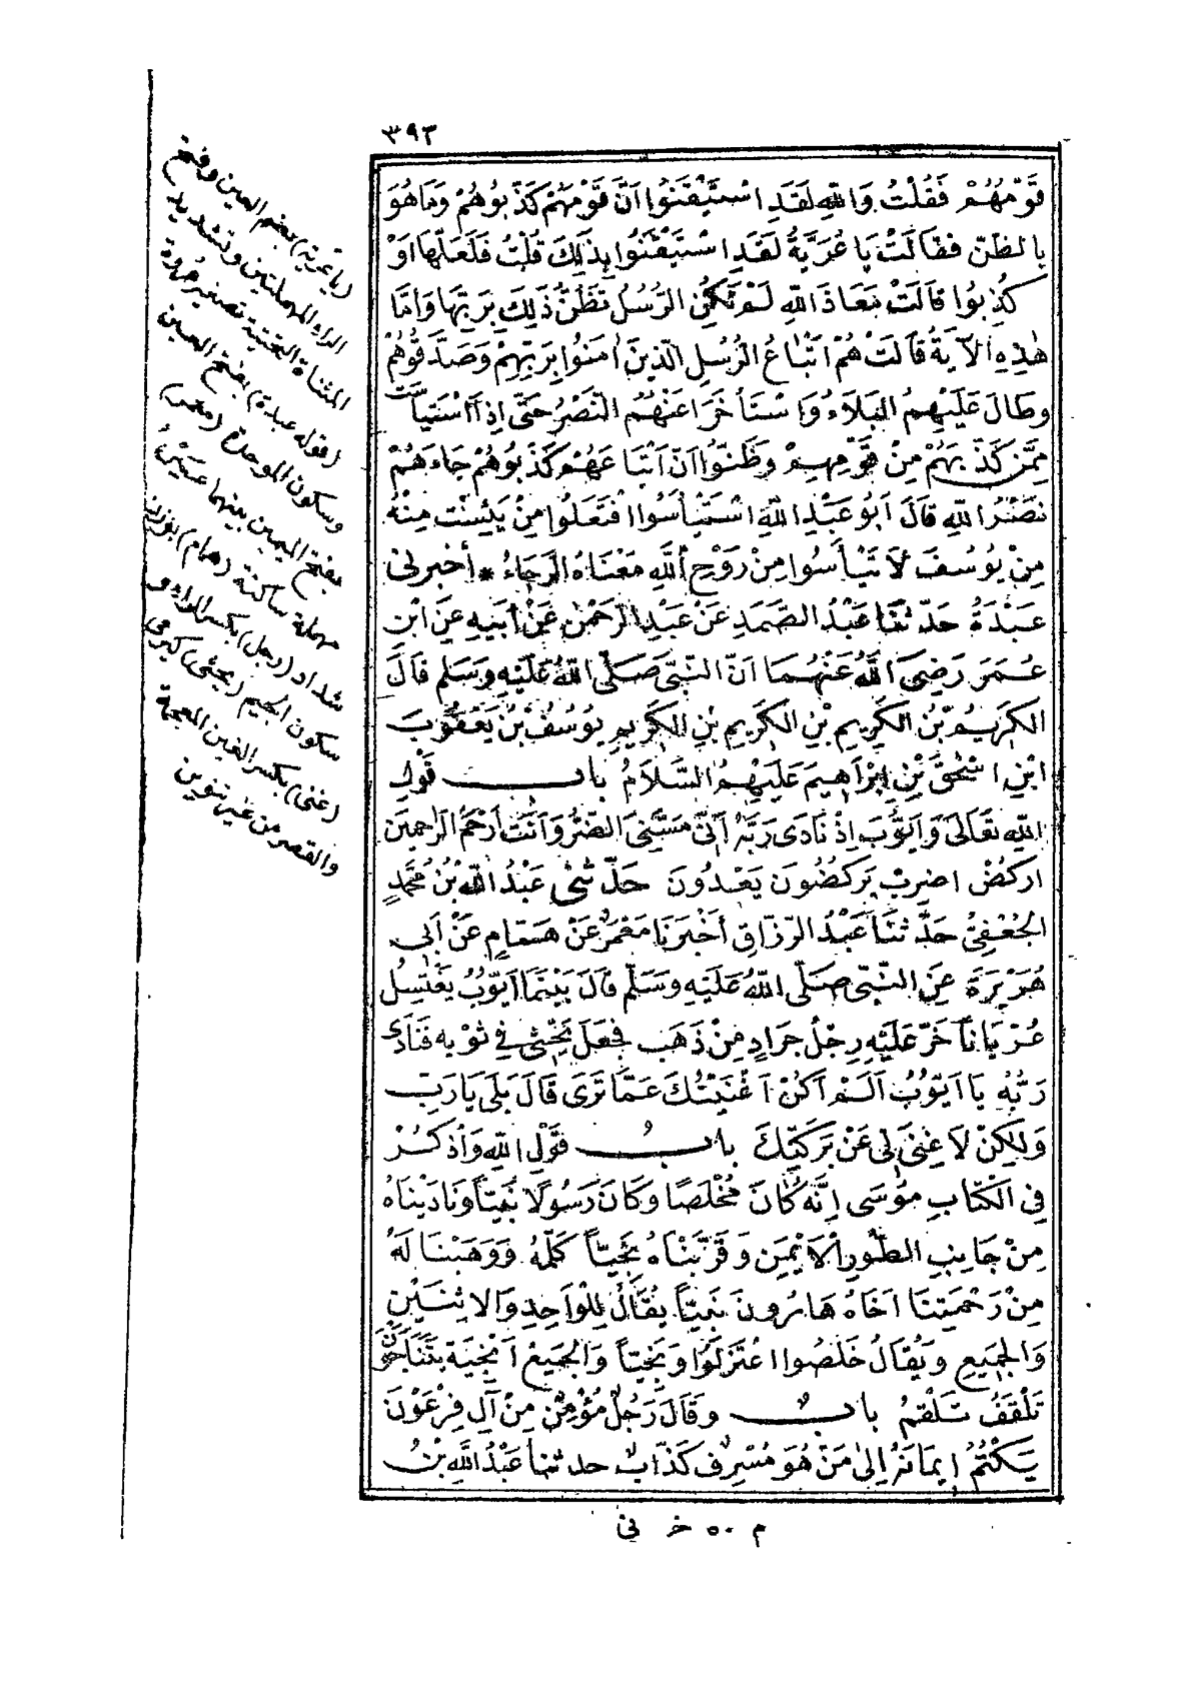 ٣٩٣
قَوْمُهُمْ فَقُلْتُ وَاللّٰهِ لَقَدِ اسْتَيْقَنُوا اَنَّ قَوْمَهُمْ كَذَّبُوهُمْ وَمَا هُوَ
بِالظَّنِّ فَقَالَتْ يَا عُرَيَّةُ لَقَدِ اسْتَيْقَنُوا بِذٰلِكَ قُلْتُ فَلَعَلَّهَا اَوْ
كُذِبُوا قَالَتْ مَعَاذَ اللّٰهِ لَمْ تَكُنِ الرُّسُلُ تَظُنُّ ذٰلِكَ بِرَبِّهَا وَاَمَّا
هٰذِهِ الْآيَةُ قَالَتْ هُمْ اَتْبَاعُ الرُّسُلِ الَّذِينَ اٰمَنُوا بِرَبِّهِمْ وَصَدَّقُوهُمْ
وَطَالَ عَلَيْهِمُ الْبَلَاءُ وَاسْتَأْخَرَ عَنْهُمُ النَّصْرُ حَتَّى اِذَا اسْتَيْأَسَتْ
مِمَّنْ كَذَّبَهُمْ مِنْ قَوْمِهِمْ وَظَنُّوا اَنَّ اَتْبَاعَهُمْ كَذَّبُوهُمْ جَاءَهُمْ
نَصْرُ اللّٰهِ قَالَ اَبُو عَبْدِ اللّٰهِ اسْتَيْأَسُوا افْتَعَلُوا مِنْ يَئِسْتُ مِنْهُ
مِنْ يُوسُفَ لَا تَيْأَسُوا مِنْ رَوْحِ اللّٰهِ مَعْنَاهُ الرَّجَاءُ * أخبرني
عَبْدَةُ حَدَّثَنَا عَبْدُ الصَّمَدِ عَنْ عَبْدِ الرَّحْمٰنِ عَنْ أَبِيهِ عَنِ ابْنِ
عُمَرَ رَضِيَ اللّٰهُ عَنْهُمَا اَنَّ النَّبِيَّ صَلَّى اللّٰهُ عَلَيْهِ وَسَلَّمَ قَالَ
الْكَرِيمُ بْنُ الْكَرِيمِ بْنِ الْكَرِيمِ بْنِ الْكَرِيمِ يُوسُفُ بْنُ يَعْقُوبَ
ابْنِ اِسْحٰقَ بْنِ اِبْرَاهِيمَ عَلَيْهِمُ السَّلَامُ بابُ قَوْلِ
اللّٰهِ تَعَالَى وَاَيُّوبَ اِذْ نَادَى رَبَّهُ اَنِّى مَسَّنِىَ الضُّرُّ وَاَنْتَ اَرْحَمُ الرَّاحِمِينَ
ارْكُضْ اضْرِبْ يَرْكُضُونَ يَعْدُونَ حَدَّثَنِى عَبْدُ اللّٰهِ بْنُ مُحَمَّدٍ
الْجُعْفِىُّ حَدَّثَنَا عَبْدُ الرَّزَّاقِ أَخْبَرَنَا مَعْمَرٌ عَنْ هَمَّامٍ عَنْ اَبِى
هُرَيْرَةَ عَنِ النَّبِىِّ صَلَّى اللّٰهُ عَلَيْهِ وَسَلَّمَ قَالَ بَيْنَمَا اَيُّوبُ يَغْتَسِلُ
عُرْيَانًا خَرَّ عَلَيْهِ رِجْلُ جَرَادٍ مِنْ ذَهَبٍ فَجَعَلَ يَحْثِى فِى ثَوْبِهِ فَنَادَى
رَبُّهُ يَا اَيُّوبُ اَلَمْ اَكُنْ اَغْنَيْتُكَ عَمَّا تَرَى قَالَ بَلَى يَا رَبِّ
وَلٰكِنْ لَا غِنَى لِى عَنْ بَرَكَتِكَ بابُ قَوْلِ اللّٰهِ وَاذْكُرْ
فِى الْكِتَابِ مُوسَى اِنَّهُ كَانَ مُخْلَصًا وَكَانَ رَسُولًا نَبِيًّا وَنَادَيْنَاهُ
مِنْ جَانِبِ الطُّورِ الْاَيْمَنِ وَقَرَّبْنَاهُ نَجِيًّا كَلَّمَهُ وَوَهَبْنَا لَهُ
مِنْ رَحْمَتِنَا اَخَاهُ هَارُونَ نَبِيًّا يُقَالُ لِلْوَاحِدِ وَالِاثْنَيْنِ
وَالْجَمِيعِ وَيُقَالُ خَلَصُوا اعْتَزَلُوا نَجِيًّا وَالْجَمِيعُ اَنْجِيَةٌ يَتَنَاجَوْنَ
تَلْقَفُ تَلْقَمُ بابٌ وَقَالَ رَجُلٌ مُؤْمِنٌ مِنْ آلِ فِرْعَوْنَ
يَكْتُمُ اِيمَانَهُ اِلَى مَنْ هُوَ مُسْرِفٌ كَذَّابٌ حدثنا عَبْدُ اللّٰهِ بْنُ
م ٥٠ خ نى
(يا عرية) بضم العين وفتح
الراء المهملتين وتشديد
المثناة التحتية تصغير عروة
(قوله عبدة) بفتح العين
وسكون الموحدة (معمر)
بفتح الميمين بينهما عين
مهملة ساكنة (همام) بوزن
شداد (رجل) بكسر الراء و
سكون الجيم (يحثى) كيرمى
(غنى) بكسر الغين المعجمة
والقصر من غير تنوين